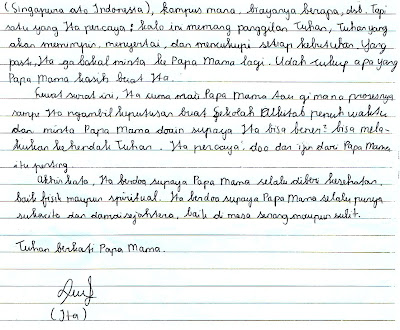 (Singapura ato Indonesia), kampus mana, biayanya berapa, dsb. Tapi
satu yang Ita percaya : kalo ini memang panggilan Tuhan, Tuhan yang
akan memimpin, menyertai, dan mencukupi setiap kebutuhan. Yang
pasti, Ita ga bakal minta ke Papa Mama lagi. Udah cukup apa yang
Papa Mama kasih buat Ita.
Lewat surat ini, Ita cuma mau Papa Mama tau gimana prosesnya
sampe Ita ngambil keputusan buat Sekolah Alkitab penuh waktu
dan minta Papa Mama doain supaya Ita bisa bener² bisa mela-
kukan kehendak Tuhan. Ita percaya, doa dan ijin dari Papa Mama
itu penting.
Akhir kata, Ita berdoa supaya Papa Mama selalu diberi kesehatan,
baik fisik maupun spiritual. Ita berdoa supaya Papa Mama selalu punya
sukacita dan damai sejahtera, baik di masa senang maupun sulit.
Tuhan berkati Papa Mama.
(Ita)